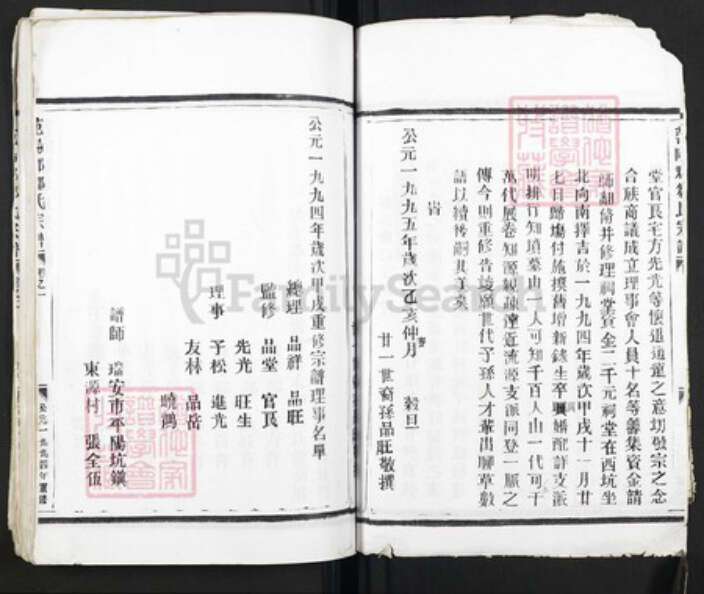 堂官良宅方先光等懷追遠之意切發宗之念
合族商議成立理事會人員十名等籌集資金請
師翻脩并修理祠堂資金二千元祠堂在西坑坐
北向南擇吉於一九九四年歲次甲戌十一月廿
七日歸場付施撰舊增新錄生卒婚配詳支派
明排行知墳墓山一人可知千百人山一代可千
萬代展卷知源親疎遠近流源支派同登一脈之
傳今則重修告竣願世代子孫人才輩出聊草數
語以續後嗣其于亥
旹
公元一九九五年歲次乙亥仲月 穀旦
廿一世裔孫品旺敬撰
公元一九九四年歲次甲戌重修宗譜理事名單
總理 品祥 品旺
監修 品堂 官良
先光 旺生
理事 予松 進光
友林 品岳
曉鴻
譜師 瑞安市平陽坑鎮
東源村 張全伍
氏宗譜 卷之一
公元一九九四年重修
FamilySearch